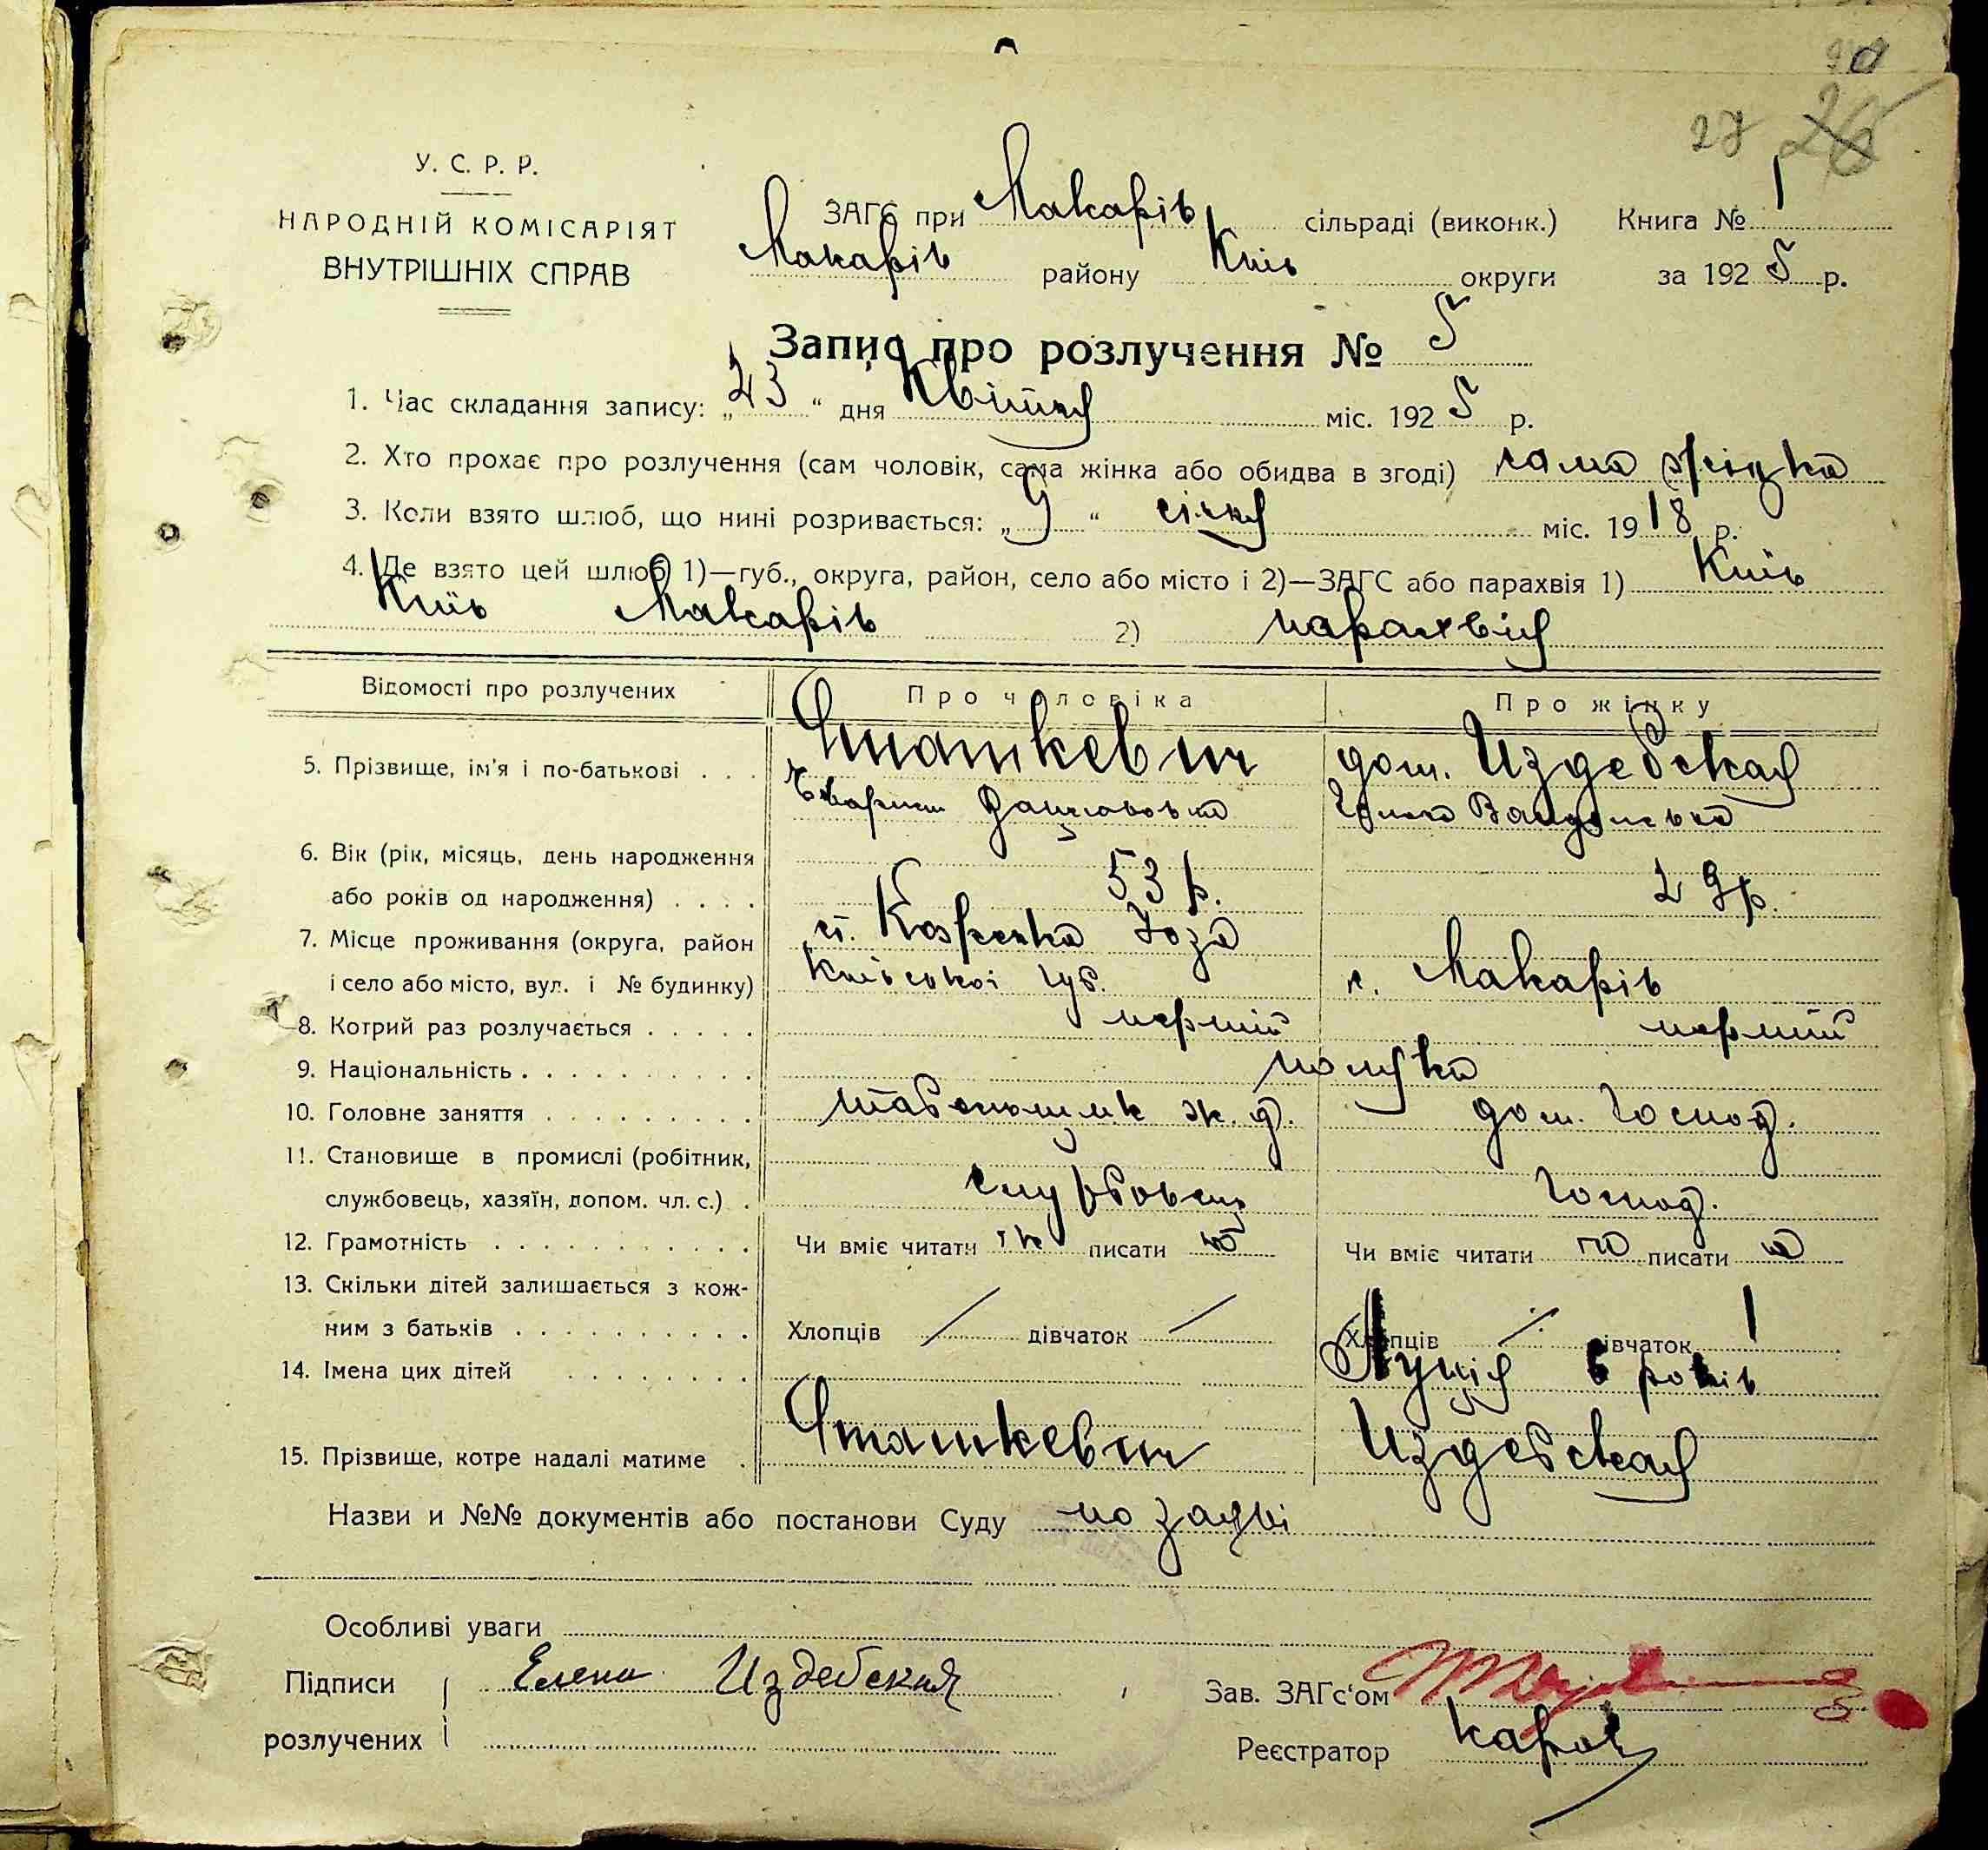 27 26
У. С. Р. Р.
НАРОДНІЙ КОМІСАРІЯТ
ВНУТРІШНІХ СПРАВ
ЗАГС при Макарів сільраді (виконк.) Книга № 1
Макарів району Київ округи за 1925 р.
Запис про розлучення № 5
1. Час складання запису: „23“ дня Квітня міс. 1925 р.
2. Хто прохає про розлучення (сам чоловік, сама жінка або обидва в згоді) сама жінка
3. Коли взято шлюб, що нині розривається: „9“ січня міс. 1918 р.
4. Де взято цей шлюб 1)—губ., округа, район, село або місто і 2)—ЗАГС або парахвія 1) Київ
Київ Макарів 2) парахвія
Відомості про розлучених Про чоловіка Про жінку
5. Прізвище, ім'я і по-батькові . . . Сташкевич дош. Издебская
6. Вік (рік, місяць, день народження
або років од народження) . . . . 53 р. 29 р.
7. Місце проживання (округа, район
і село або місто, вул. і № будинку) Київської губ. с. Макарів
8. Котрий раз розлучається . . . . . перший перший
9. Національність . . . . . . . . . . полька
10. Головне заняття . . . . . . . . . табельщик ж. д. дом. господ.
11. Становище в промислі (робітник,
службовець, хазяїн, допом. чл. с.) . службовець господ.
12. Грамотність . . . . . . . . . . . Чи вміє читати так писати Чи вміє читати писати
13. Скільки дітей залишається з кож-
ним з батьків . . . . . . . . . . Хлопців / дівчаток / Хлопців / дівчаток 1
14. Імена цих дітей . . . . . . . . Луція 6 років
15. Прізвище, котре надалі матиме . Сташкевич Издебская
Назви и №№ документів або постанови Суду по заяві
Особливі уваги
Підписи Елена Издебская Зав. ЗАГс'ом
розлучених Реєстратор